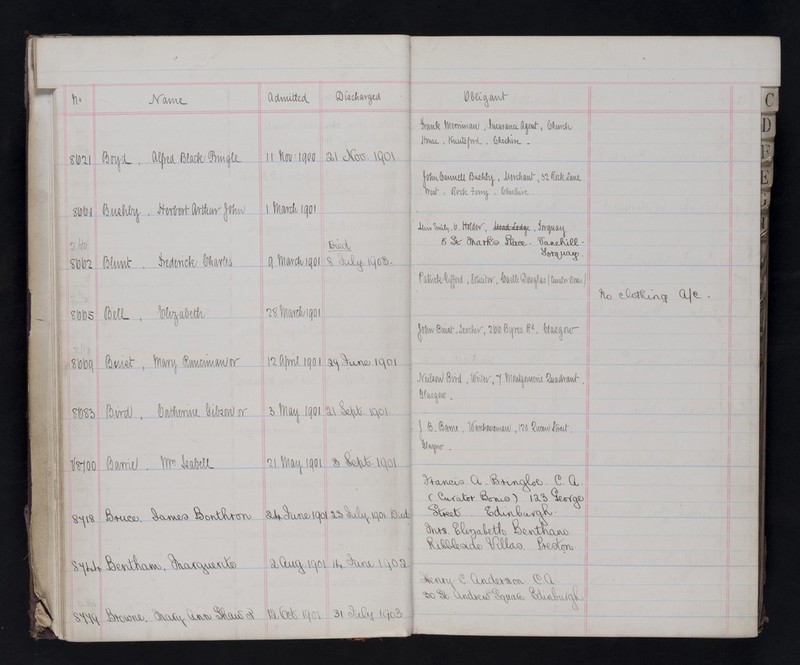 No Name Admitted Discharged Obligant
Frank Merriman, Insurance Agent, Church
House, Knutsford, Cheshire.
8621 Boyd, Alfred Black Pringle 11 Nov. 1900 21 Nov. 1901
John Bushby, Merchant, 52 Rock Lane
West, Rock Ferry, Cheshire
Bushby, Herbert Arthur John 1 March 1901
Miss Emily. Holder, Torquay
5 St Mark's Place. Vanehill.
Torquay.
Died
8662 Blunt, Frederick Charles 9 March 1901 8 July 1903.
Patrick Gifford, Solicitor, Castle Douglas (Curator Bonis)
No clothing a/c.
8665 Bell, Elizabeth 28 March 1901
John, Teacher, Byres Rd. Glasgow
8669 Mary or 12 April 1901 29 June 1901
Neilson Bird, Writer, 7 Montgomerie Quadrant.
Glasgow.
8683 Bird, Catherine Gibson or 3 May 1901 21 Sept. 1901
J. B. Barrie, Warehouseman, Street.
Glasgow.
8700 Barrie, Mrs Isabell 21 May 1901 3 Sept. 1901
Francis A. Bringloe. C.A
(Curator Bonis) 123 George
Street Edinburgh.
8718 Bruce, James Bonthron 24 June 1901 23 July 1901 Died
Mrs. Elizabeth Bentham
Ribbleside Villas. Preston
8744 Bentham, Marguerite 2 Aug 1901 14 June 1902
Henry C Anderson C.A
30 St Andrew Square Edinburgh
Browne, Mary Ann Shaw or Oct 1901 31 July 1903
C
D